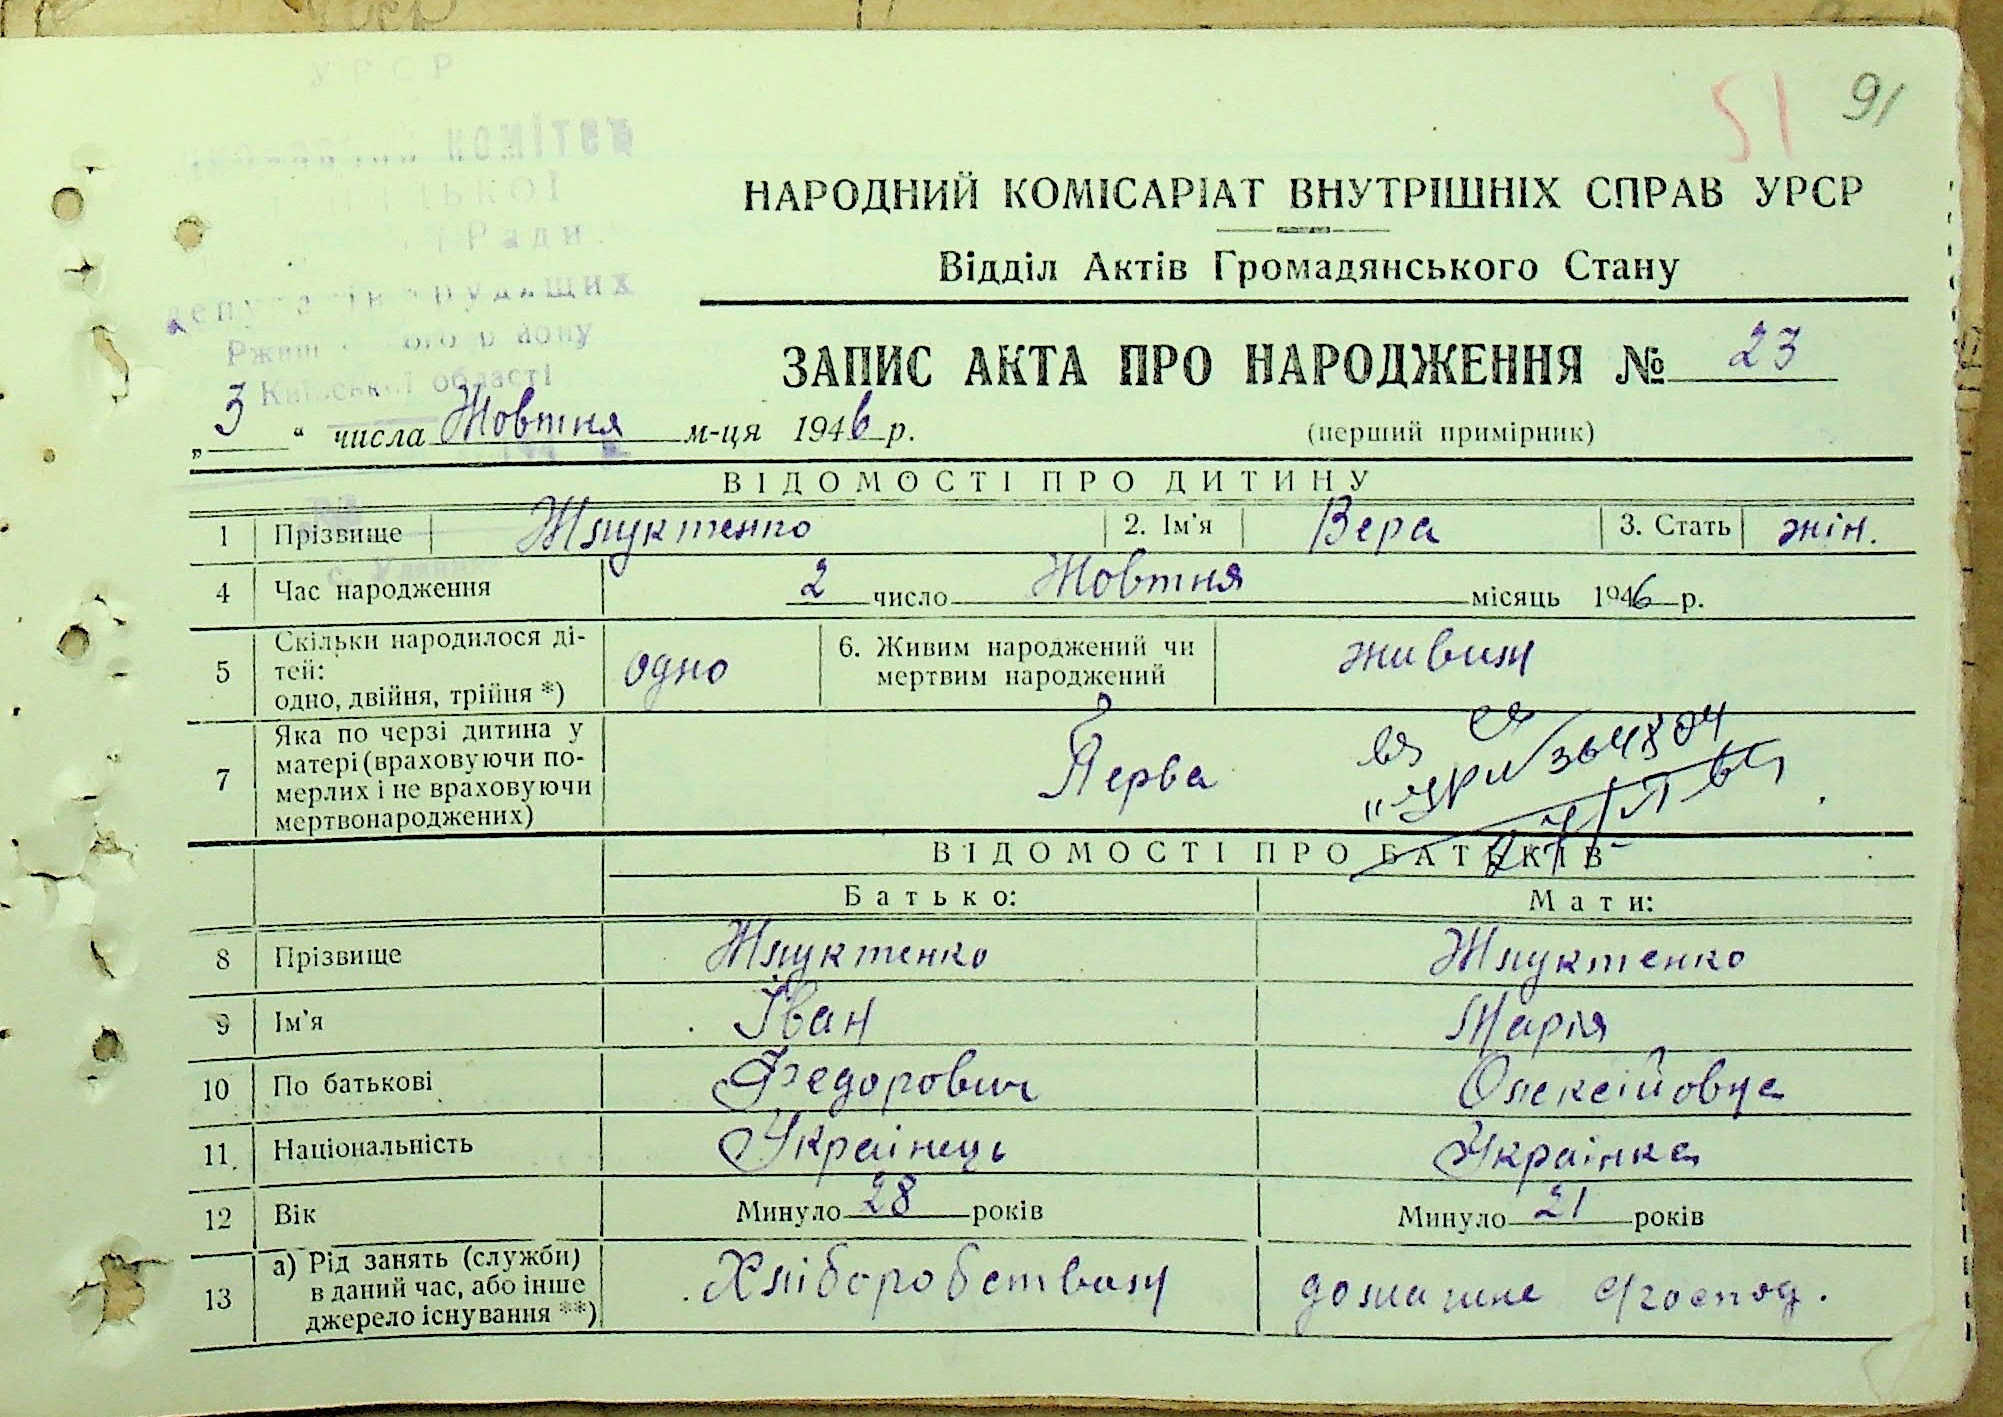 91
51
УРСР
комітет
Ради
депутатів трудящих
району
Київської області
НАРОДНИЙ КОМІСАРІАТ ВНУТРІШНІХ СПРАВ УРСР
Відділ Актів Громадянського Стану
ЗАПИС АКТА ПРО НАРОДЖЕННЯ № 23
„ 3 “ числа Жовтня м-ця 1946 р. (перший примірник)
ВІДОМОСТІ ПРО ДИТИНУ
1 Прізвище Жлуктенко 2. Ім’я Вера 3. Стать жін.
4 Час народження 2 число Жовтня місяць 1946 р.
5 Скільки народилося ді-
тей:
одно, двійня, трійня *) одно 6. Живим народжений чи
мертвим народжений живим
7 Яка по черзі дитина у
матері (враховуючи по-
мерлих і не враховуючи
мертвонароджених) Перва
ВІДОМОСТІ ПРО БАТЬКІВ
Батько: Мати:
8 Прізвище Жлуктенко Жлуктенко
9 Ім’я Іван Марія
10 По батькові Федорович Олексійовна
11. Національність Українець Українка
12 Вік Минуло 28 років Минуло 21 років
13 а) Рід занять (служби)
в даний час, або інше
джерело існування **) Хліборобством домашнє господ.